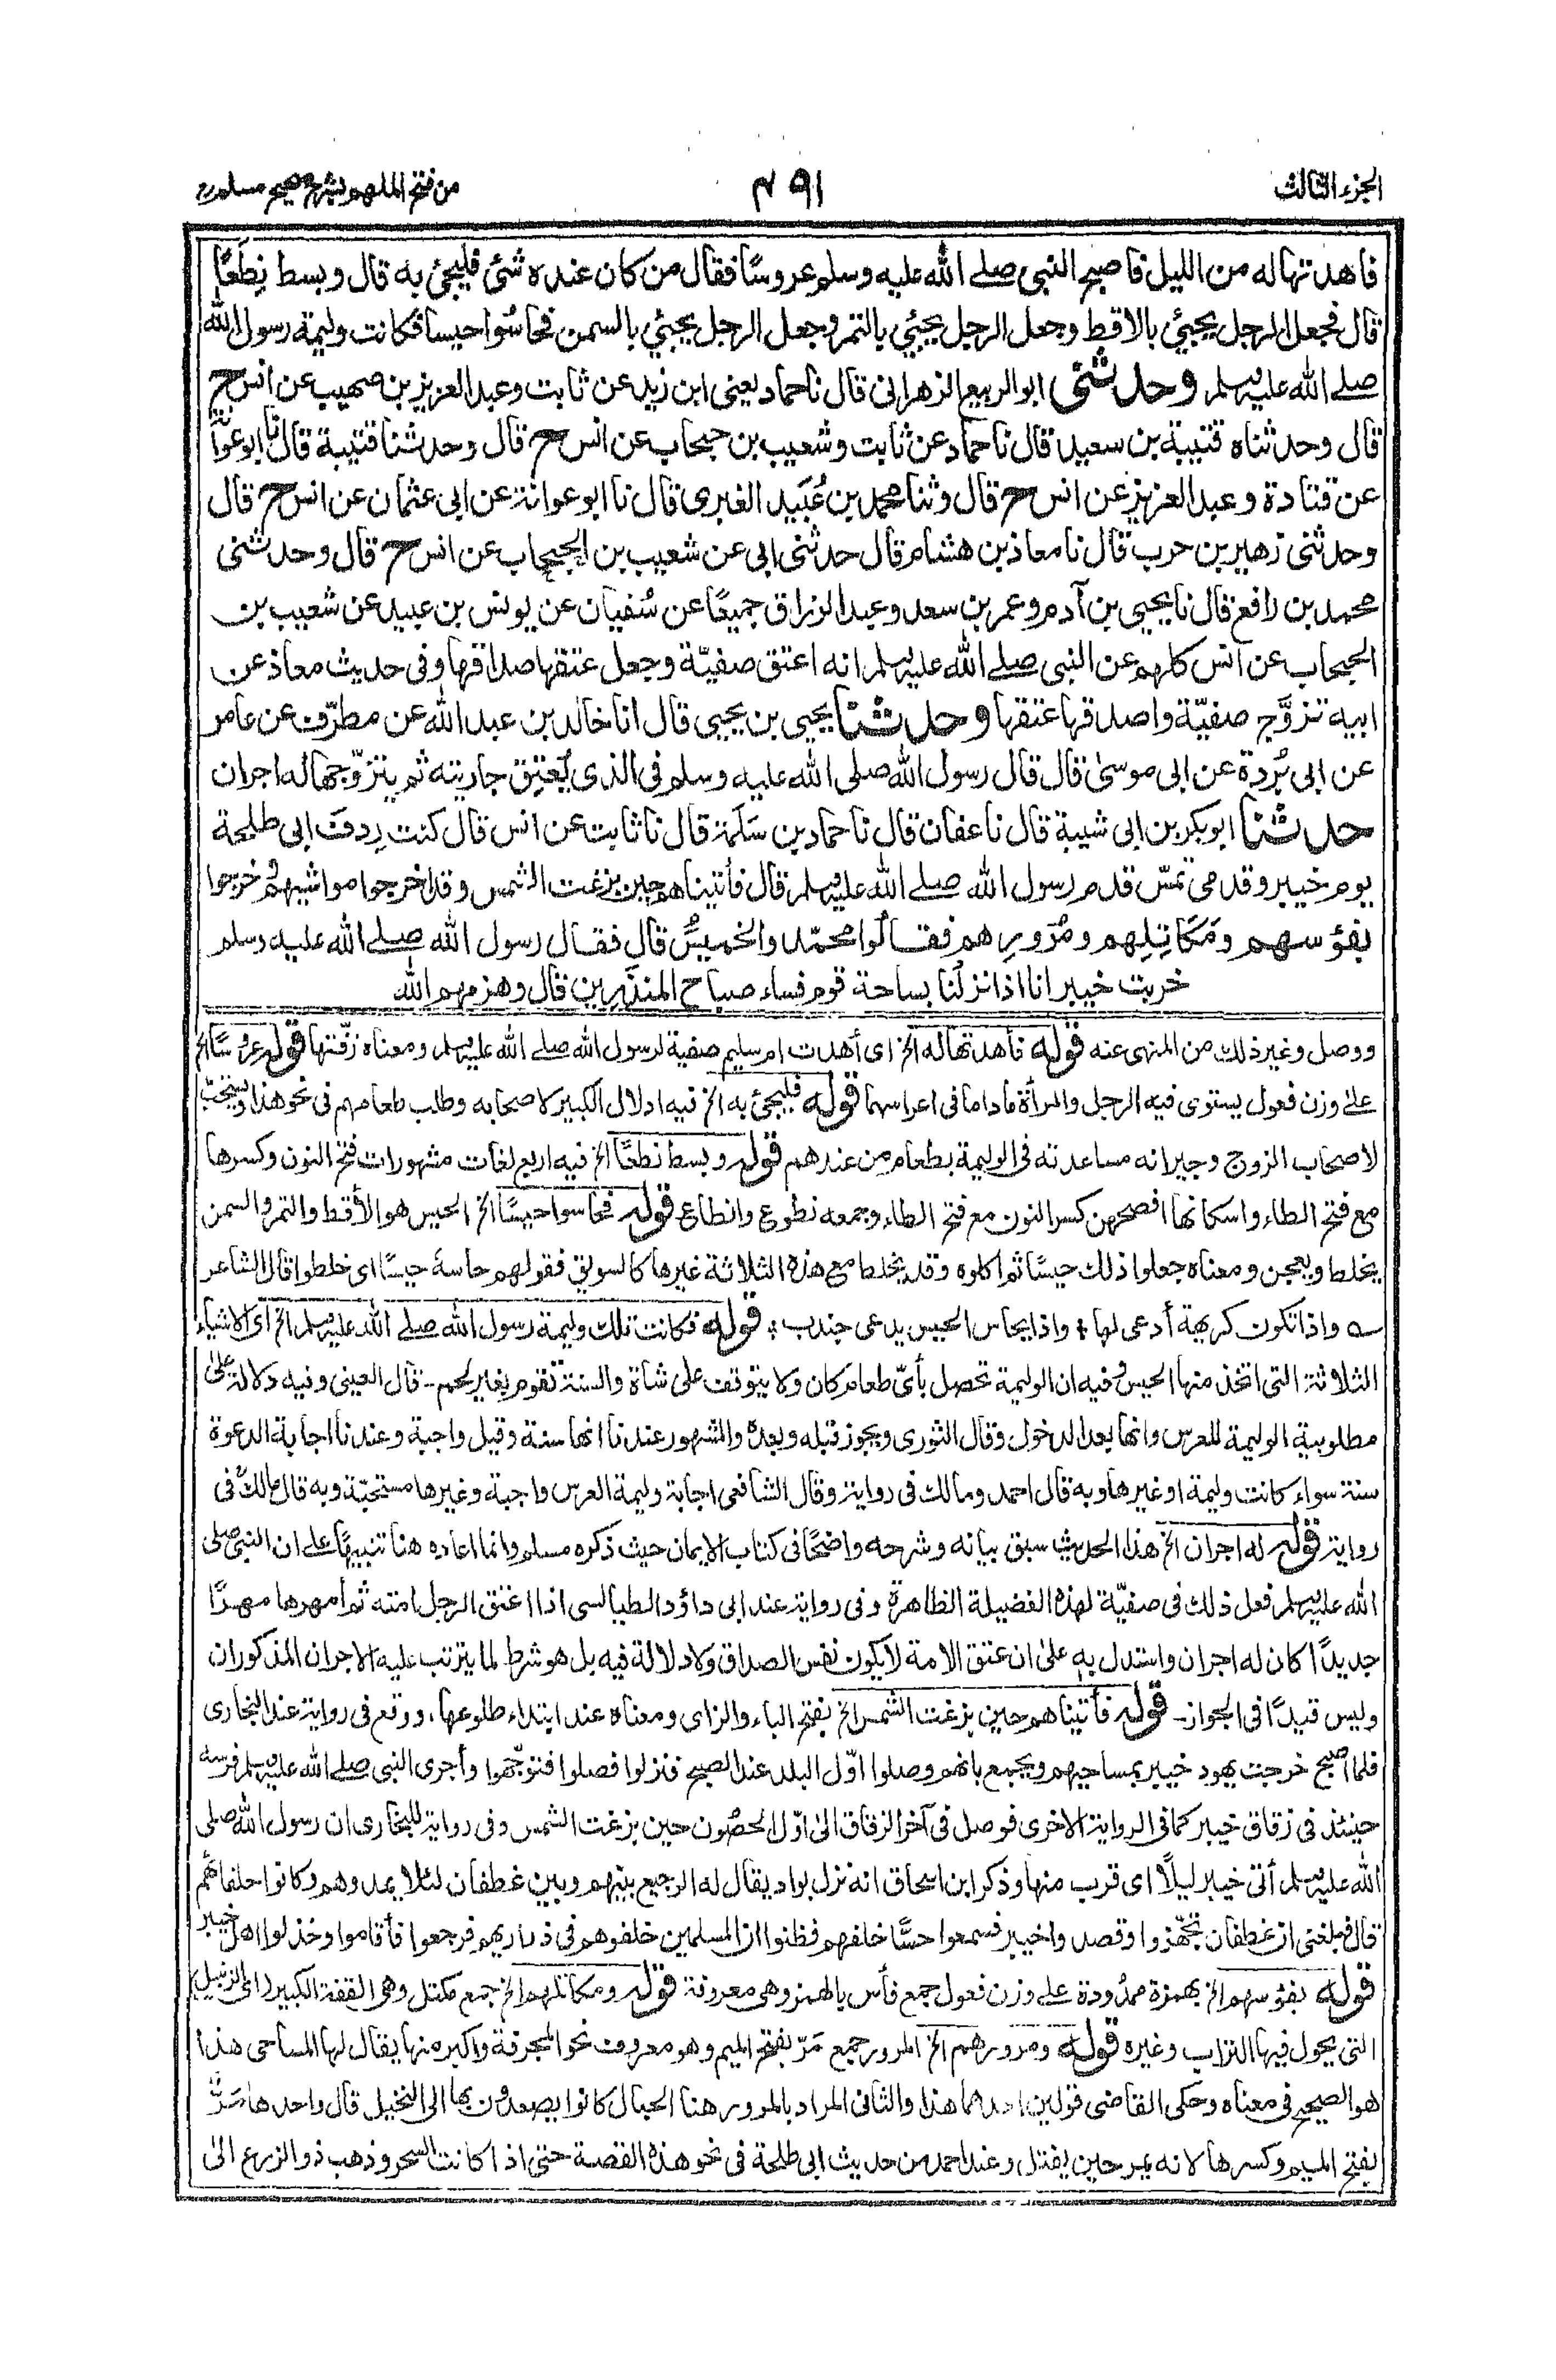 الجزء الثالث
٤٩١
من فتح الملهم بشرح صحيح مسلم
فاهدتها له من الليل فاصبح النبى صلے الله عليه وسلم عروسًا فقال من كان عنده شئ فليجئ به قال وبسط نِطَعًا
قال فجعل الرجل يجيئ بالاقط وجعل الرجل يجيئ بالتمر وجعل الرجل يجيئ بالسمن فحاسُوا حيسا فكانت وليمة رسول الله
صلے الله عليه وسلم وحدثنى ابو الربيع الزهرانى قال نا حماد يعنى ابن زيد عن ثابت وعبد العزيز بن صهيب عن انس ح
قال وحدثناه قتيبة بن سعيد قال نا حماد عن ثابت وشعيب بن حبحاب عن انس ح قال وحدثنا قتيبة قال نا ابو عوانة
عن قتادة وعبد العزيز عن انس ح قال وثنا محمد بن عُبَيد الغبرى قال نا ابو عوانة عن ابى عثمان عن انس ح قال
وحدثنى زهير بن حرب قال نا معاذ بن هشام قال حدثنى ابى عن شعيب بن الحبحاب عن انس ح قال وحدثنى
محمد بن رافع قال نا يحيى بن آدم وعمر بن سعد وعبد الرزاق جميعًا عن سُفيان عن يونس بن عبيد عن شعيب بن
الحبحاب عن انس كلهم عن النبى صلے الله عليه وسلم انه اعتق صفيّة وجعل عتقها صداقها وفى حديث معاذ عن
ابيه تزوَّج صفيّة واصدقها عتقها وحدثنا يحيى بن يحيى قال انا خالد بن عبد الله عن مطرّف عن عامر
عن ابى بُردة عن ابى موسىٰ قال قال رسول الله صلى الله عليه وسلم فى الذى يُعتِق جاريته ثم يتزوّجها له اجران
حدثنا ابو بكر بن ابى شيبة قال نا عفان قال نا حماد بن سَلَمة قال نا ثابت عن انس قال كنت رِدفَ ابى طلحة
يوم خيبر وقدمى تمسّ قدم رسول الله صلے الله عليه وسلم قال فأتيناهم حين بزغت الشمس وقد اخرجوا مواشيهم وخرجوا
بفؤسهم ومَكَاتِلِهم ومُرورِهم فقالُوا محمّد والخميسُ قال فقال رسول الله صلے الله عليه وسلم
خربت خيبر انا اذا نزلنا بساحة قوم فساء صباح المنذَرين قال وهزمهم الله
ووصل وغير ذلك من المنهى عنه قوله فأهدتها له الخ اى أهدت ام سليم صفية لرسول الله صلے الله عليه وسلم ومعناه زفّتها قوله عروسًا الخ
علے وزن فعول يستوى فيه الرجل والمرأة ما داما فى اعراسهما قوله فليجئ به الخ فيه ادلال الكبير لاصحابه وطلب طعامهم فى نحو هذا ويستحبّ
لاصحاب الزوج وجيرانه مساعدته فى الوليمة بطعام من عندهم قوله وبسط نطعًا الخ فيه اربع لغات مشهورات فتح النون وكسرها
مع فتح الطاء واسكانها افصحهن كسر النون مع فتح الطاء وجمعه نطوع وانطاع قوله فحاسوا حيسًا الخ الحيس هو الأقط والتمر والسمن
يخلط ويعجن ومعناه جعلوا ذلك حيسًا ثم اكلوه وقد يخلط مع هذه الثلاثة غيرها كالسويق فقولهم حاسة حيسًا اى خلطوا قال الشاعر
واذا تكون كريهة أدعى لها ؛ واذا يحاس الحيس يدعى جندب ؛ قوله فكانت تلك وليمة رسول الله صلے الله عليه وسلم الخ اى الاشياء
الثلاثة التى اتخذ منها الحيس وفيه ان الوليمة تحصل بأىّ طعام كان ولا يتوقف على شاة والسنة تقوم بغير لحم۔ قال العينى وفيه دلالة علىٰ
مطلوبية الوليمة للعرس وانها بعد الدخول وقال الثورى ويجوز قبله وبعده والمشهور عندنا انها سنة وقيل واجبة وعندنا اجابة الدعوة
سنة سواء كانت وليمة او غيرها وبه قال احمد ومالك فى رواية وقال الشافعى اجابة وليمة العرس واجبة وغيرها مستحبّة وبه قال مالك فى
رواية قوله له اجران الخ هذا الحديث سبق بيانه وشرحه واضحًا فى كتاب الايمان حيث ذكره مسلم وانما اعاده هنا تنبيهًا علے ان النبى صلى
الله عليه وسلم فعل ذلك فى صفيّة لهذه الفضيلة الظاهرة وفى رواية عند ابى داؤد الطيالسى اذا اعتق الرجل امته ثم أمهرها مهرًا
جديدًا كان له اجران واستدل به علىٰ ان عتق الامة لا يكون نفس الصداق ولا دلالة فيه بل هو شرط لما يترتب عليه الاجران المذكوران
وليس قيدًا فى الجواز۔ قوله فأتيناهم حين بزغت الشمس الخ بفتح الباء والزاى ومعناه عند ابتداء طلوعها، ووقع فى رواية عند البخارى
فلما اصبح خرجت يهود خيبر بمساحيهم ويجمع بانهم وصلوا اوّل البلد عند الصبح فنزلوا فصلوا فتوجّهوا وأجرى النبى صلے الله عليه وسلم فرسه
حينئذ فى زقاق خيبر كما فى الرواية الاخرى فوصل فى آخر الزقاق الىٰ اوّل الحصُون حين بزغت الشمس وفى رواية للبخارى ان رسول الله صلى
الله عليه وسلم أتى خيبر ليلًا اى قرب منها وذكر ابن اسحاق انه نزل بواد يقال له الرجيع بينهم وبين غطفان لئلا يمدوهم وكانوا حلفاءهم
قال فبلغنى ان غطفان تجهّزوا وقصدوا خيبر فسمعوا حسًّا خلفهم فظنوا ان المسلمين خلفوهم فى ذراريهم فرجعوا فأقاموا وخذلوا اهل خيبر
قوله بفؤسهم الخ بهمزة ممدُودة علے وزن فعول جمع فأس بالهمز وهى معروفة قوله ومكاتلهم الخ جمع مكتل وهى القفة الكبيرة (اى الزنبيل)
التى يحول فيها التراب وغيره قوله ومرورهم الخ المرور جمع مَرّ بفتح الميم وهو معروف نحو المجرفة واكبر منها يقال لها المساحى هذا
هو الصحيح فى معناه وحكى القاضى قولين احدهما هذا والثانى المراد بالمرور هنا الحبال كانوا يصعدون بها الى النخيل قال واحدها مَرّ
بفتح الميم وكسرها لانه يمر حين يفتل وعند احمد من حديث ابى طلحة فى نحو هذه القصة حتى اذا كانت السحر وذهب ذو الزرع الىٰ